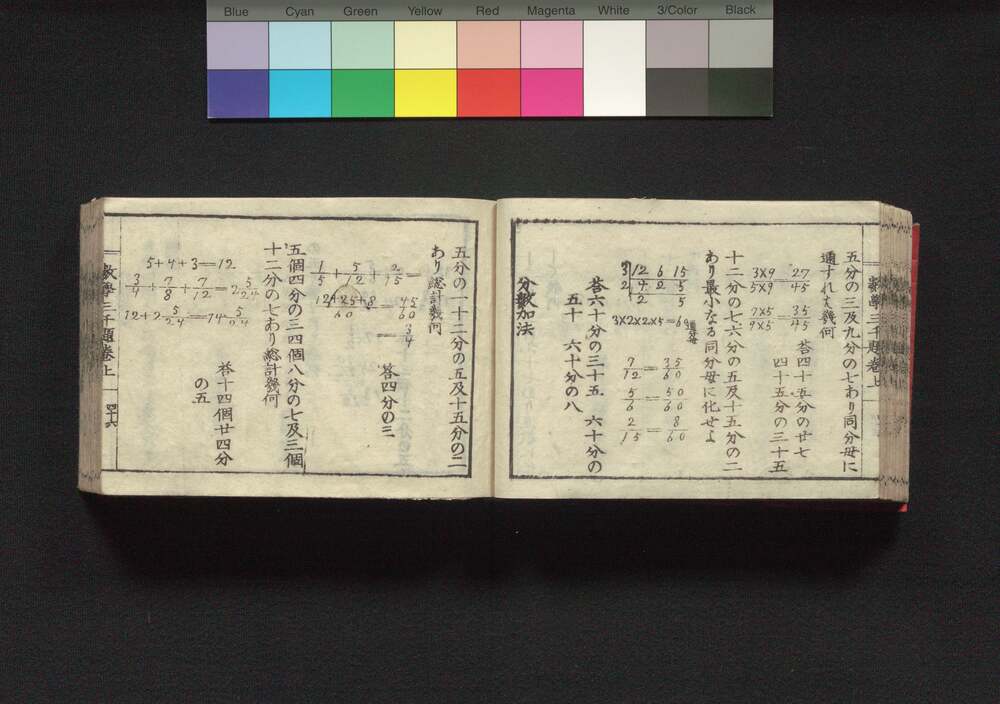 Blue Cyan Green Yellow Red Magenta White 3/Color Black
五分の三及九分の七あり同分母に
通すれば幾何
3×9/5×9 = 27/45
7×5/9×5 = 35/45
荅四十五分の廿七
四十五分の三十五
十二分の七六分の五及十五分の二
あり最小なる同分母に化せよ
3 12 6 15
2 4 2 5
2 2 5
3×2×2×5=60
7/12 = 35/60
5/6 = 50/60
2/15 = 8/60
荅六十分の三十五 六十分の
五十 六十分の八
分數加法
五分の一十二分の五及十五分の二
あり総計幾何
1/5 + 5/12 + 2/15 =
12+25+8/60 = 45/60 = 3/4
荅四分の三
五個四分の三四個八分の七及三個
十二分の七あり総計幾何
5+4+3=12
3/4 + 7/8 + 7/12 = 2 5/24
12+2 5/24 = 14 5/24
荅十四個廿四分
の五
數學三千題卷上